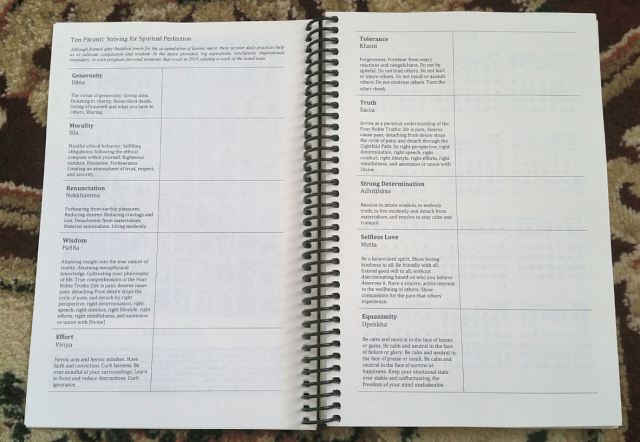 Ten Pāramī: Striving for Spiritual Perfection
Although framed after Buddhist tenets for the accumulation of karmic merit, these secular daily practices help
us to cultivate compassion and wisdom. In the space provided, log aspirations, resolutions, inspirational
reminders, or even program personal moments that occur in 2018 relating to each of the noted traits.
Generosity
Dāna
The virtue of generosity. Giving alms.
Donating to charity. Benevolent deeds.
Giving of yourself and what you have to
others. Sharing.
Morality
Sīla
Mindful ethical behavior; fulfilling
obligations; following the ethical
compass within yourself. Righteous
conduct. Discipline. Forbearance.
Creating an atmosphere of trust, respect,
and security.
Renunciation
Nekkhamma
Forbearing from earthly pleasures.
Reducing desires. Reducing cravings and
lust. Detachment from materialism.
Material minimalism. Living modestly.
Wisdom
Pañña
Attaining insight into the true nature of
reality. Attaining metaphysical
knowledge. Cultivating your philosophy
of life. True comprehension of the Four
Noble Truths (life is pain; desires cause
pain; detaching from desire stops the
cycle of pain; and detach by right
perspective, right determination, right
speech, right conduct, right lifestyle, right
efforts, right mindfulness, and ascension
or union with Divine)
Effort
Viriya
Heroic acts and heroic mindset. Have
faith and conviction. Curb laziness. Be
ever mindful of your surroundings. Learn
to focus and reduce distractions. Curb
ignorance.
Tolerance
Khanti
Forgiveness. Forbear from angry
reactions and vengefulness. Do not be
spiteful. Do not bind others. Do not hurt
or injure others. Do not insult or assault
others. Do not mistreat others. Turn the
other cheek.
Truth
Sacca
Arrive at a personal understanding of the
Four Noble Truths: life is pain, desires
cause pain; detaching from desire stops
the cycle of pain; and detach through the
Eightfold Path: by right perspective, right
determination, right speech, right
conduct, right lifestyle, right efforts, right
mindfulness, and ascension or union with
Divine.
Strong Determination
Adhiṭṭhāna
Resolve to attain wisdom, to embody
truth, to live modestly and detach from
materialism, and resolve to stay calm and
tranquil.
Selfless Love
Mutta
Be a benevolent spirit. Show loving-
kindness to all. Be friendly with all.
Extend good will to all, without
discriminating based on who you believe
deserves it. Have a sincere, active interest
in the wellbeing of others. Show
compassion for the pain that others
experience.
Equanimity
Upekkha
Be calm and neutral in the face of losses
or gains. Be calm and neutral in the face
of failure or glory. Be calm and neutral in
the face of praise or insult. Be calm and
neutral in the face of sorrow or
happiness. Keep your emotional state
ever stable and unfluctuating, the
freedom of your mind unshakeable.